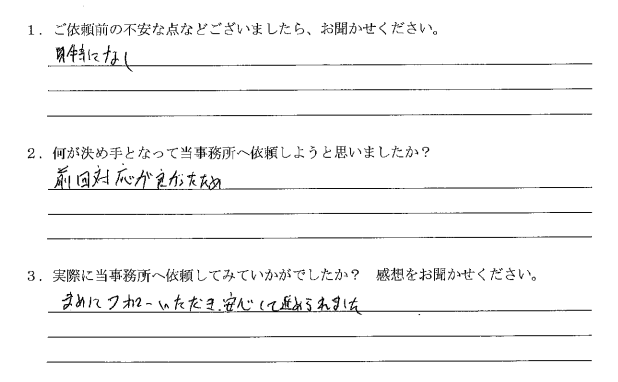 1．ご依頼前の不安な点などございましたら、お聞かせください。
特になし
2．何が決め手となって当事務所へ依頼しようと思いましたか？
前回対応が良かったため
3．実際に当事務所へ依頼してみていかがでしたか？　感想をお聞かせください。
まめにフォローいただき、安心して進められました